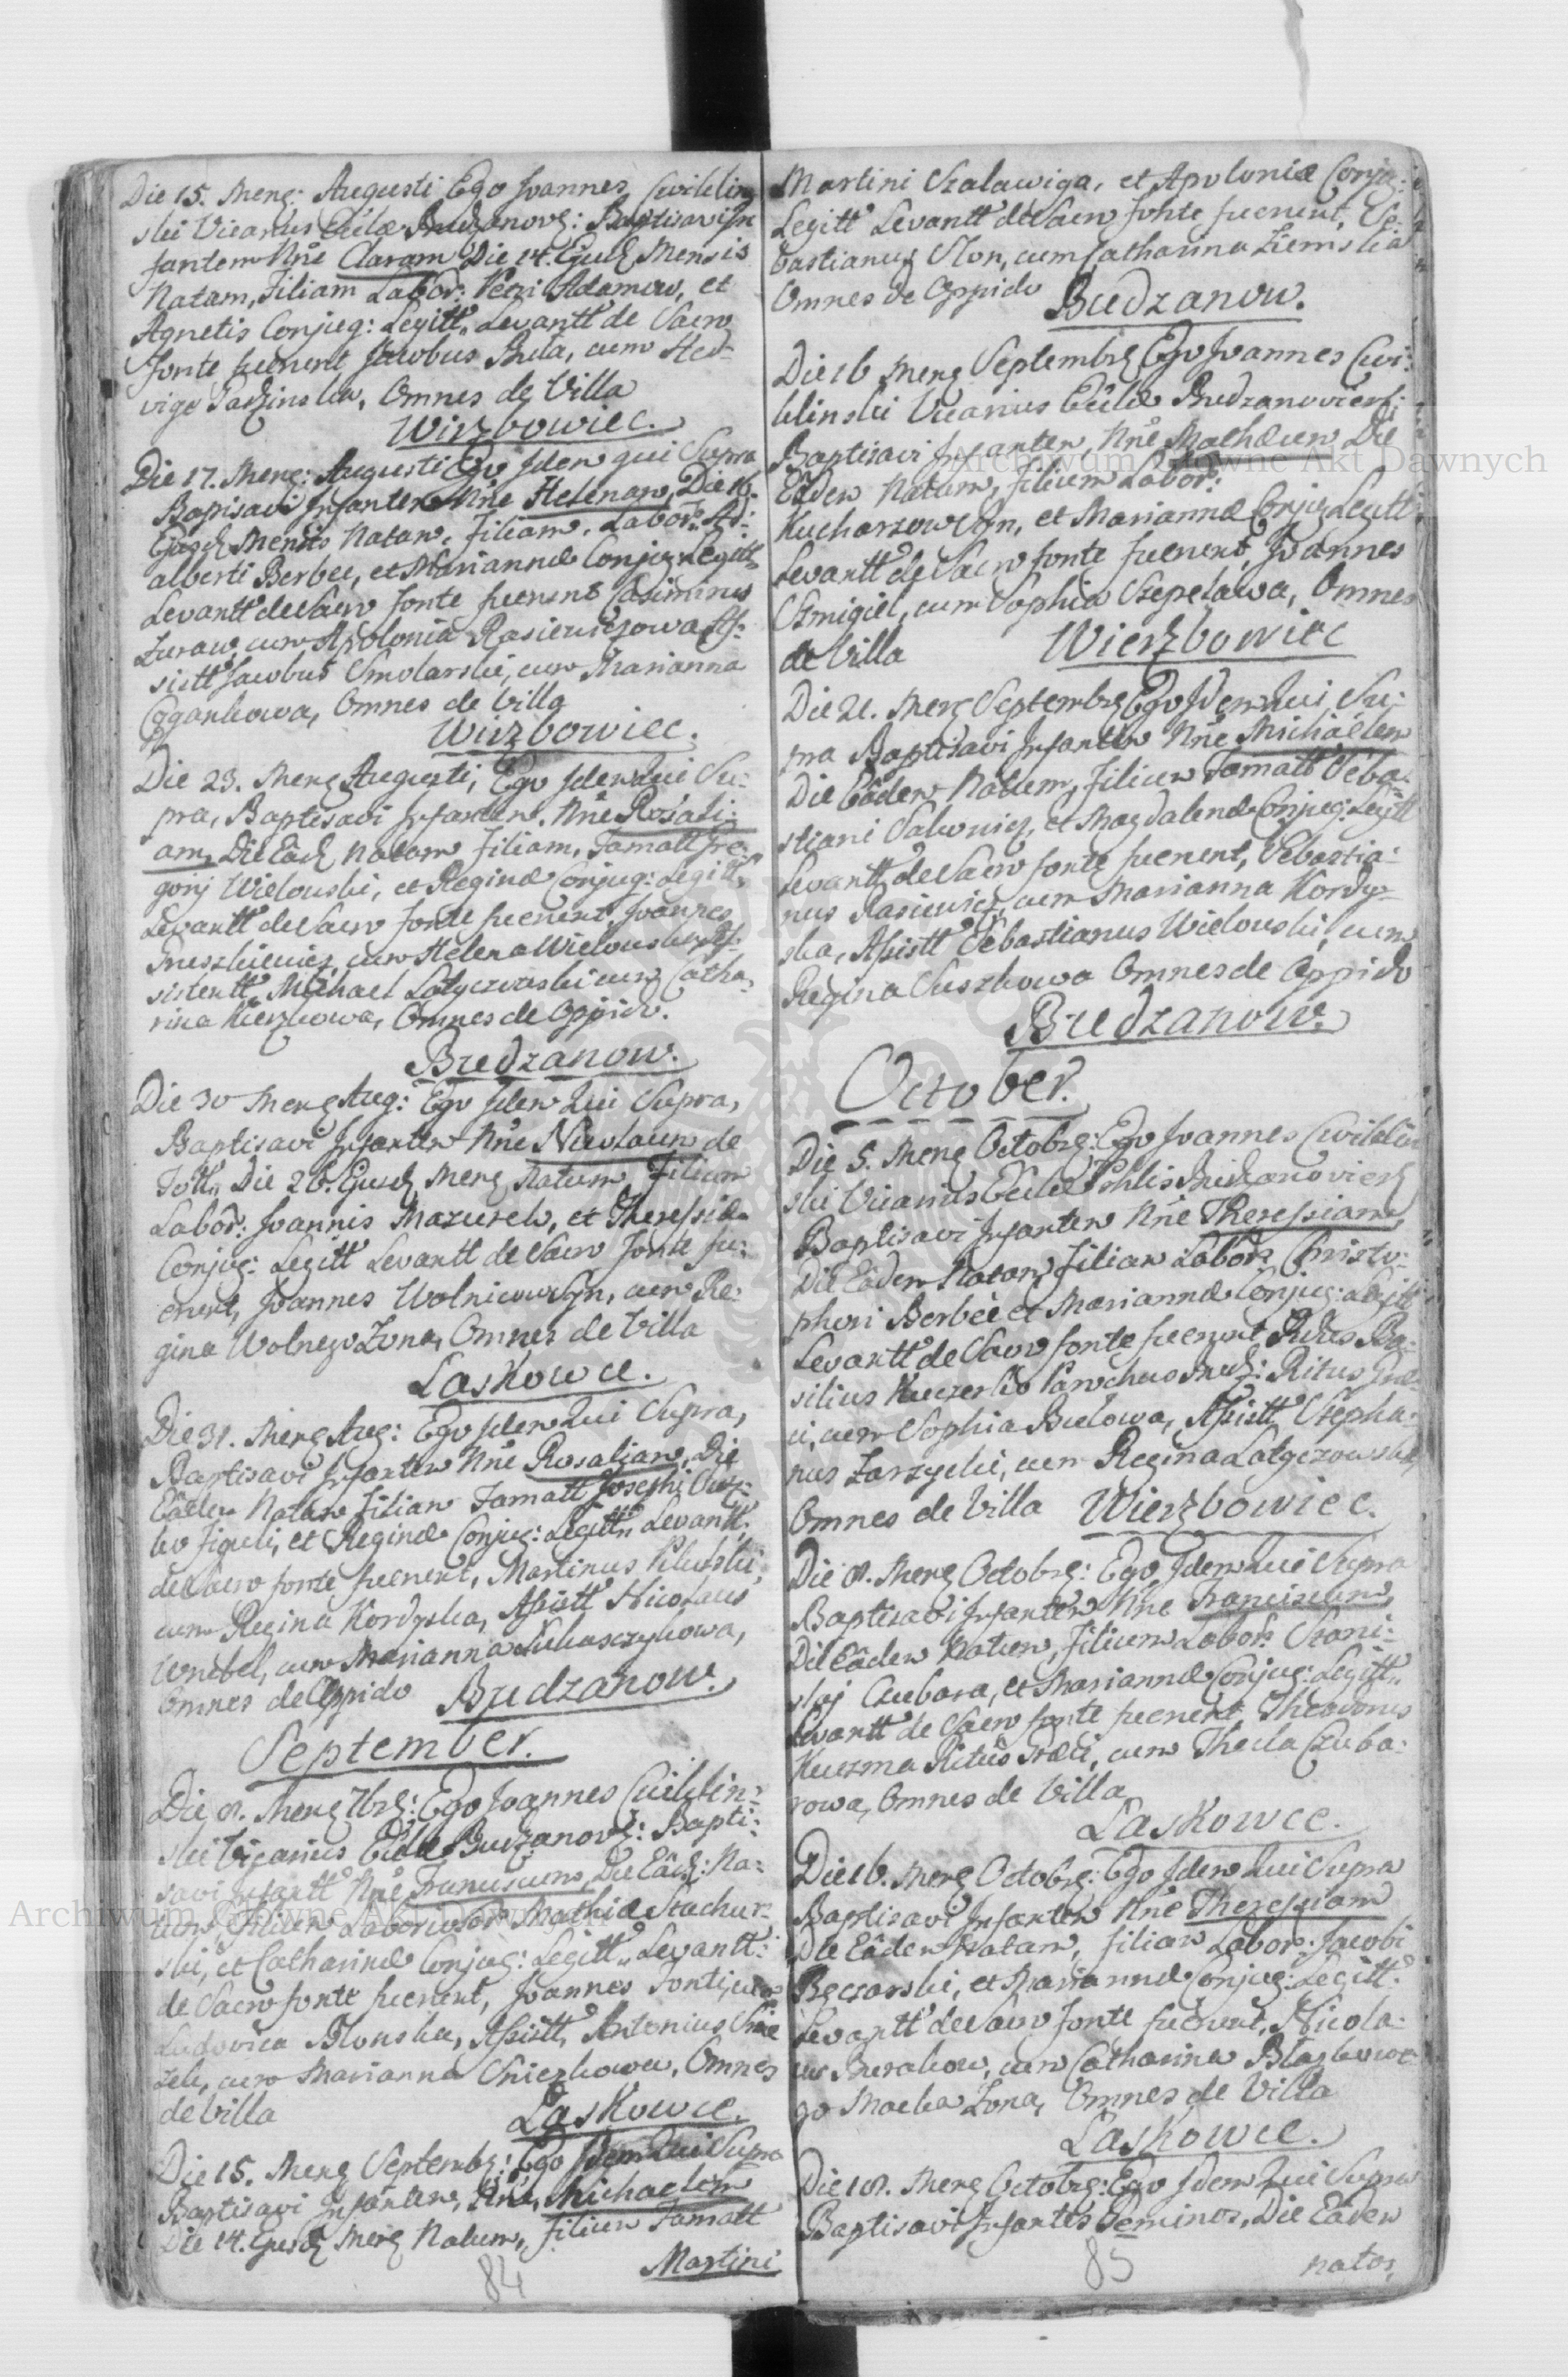 Die 15. Meng: Augusti Ego Joannes Cwiklin
ski Vicarius Eccłæ Budzanovg: Baptisavi In
fantem Nñe Claram Die 14. Ejusd Mensis
Natam, Filiam Labor: Adamow, et
Agnetis Conjug: Legitt. Levantt de Sacro
fonte fuerunt Jacobus Buła, cum Hed-
vige Omnes de Villa
Wirzbowiec.
Die 17. Meng: Augusti Ego Idem qui Supra
Baptisavi Infantem Nñe Helenam, Die 16.
Ejusd Mensis Natam, Filiam, Labor: Ad:
alberti Berbec, et Mariannæ Conjug Legitt
Levantt de Sacro fonte fuerunt Casimirus
Zuraw cum Apolonia Rasiewiczowa As:
sistt Jacobus Smolarski, cum Marianna
Cygankowa, Omnes de Villa
Wirzbowiec.
Die 23. Meng Augusti, Ego Idem Qui Su:
pra, Baptisavi Infantem, Nñe Rosali:
am, Die Eâd Natam Filiam, Famatt Gre:
gorij Wielouski, et Reginæ Conjug: Legitt.
Levantt de Sacro fonte fuerunt, Joannes
cum Helena Wielouska As:
sistentt Michael Latyczewski cum Catha
rina Kierzkowa, Omnes de Oppido.
Budzanow.
Die 30 Meng Aug: Ego Idem Qui Supra,
Baptisavi Infantem Nñe Nicolaum de
Die 26. Ejusd Meng Natum, Filium
Labor: Joannis Mazurek, et Theressiæ
Conjug: Legitt Levantt de Sacro fonte fu:
erunt, Joannes Wolnicowsyn, cum Re:
gina Wolnego Zona, Omnes de Villa
Laskowce.
Die 31. Meng Aug: Ego Idem Qui Supra,
Baptisavi Infantem Nñe Rosaliam, Die
Eâdem Natam Filiam Famatt Josephi
Figuli, et Reginæ Conjug: Legitt. Levantt:
de Sacro fonte fuerunt, Martinus
cum Regina Kordyska, Assistt Nicolaus
Wrubel, cum Marianna Łukasczykowa,
Omnes de Oppido Budzanow.
September.
Die 8. Meng 7brg: Ego Joannes Cwiklin:
ski Vicarius Eccłæ Budzanovg: Bapti:
savi Infantt Nñe Franciscum, Die Eâd: Na:
tum, Filium Laboriosor Mathiæ Stachur:
ski, et Catharinæ Conjug: Legitt. Levantt:
de Sacro fonte fuerunt, Joannes cum
Ludovica Błonska, Assistt Antonius
cum Marianna Sniezkowa, Omnes
de Villa Laskowce.
Die 15. Meng Septembg: Ego Idem Qui Supra
Baptisavi Infantem, Nñe, Michaelem
Die 14. Ejusd Meng Natum, Filium Famatt
Martini
84
Martini Szalawiga, et Apoloniæ Conjg:
Legitt Levantt de Sacro fonte fuerunt, Se-
bastianus Slon, cum Catharina Ziemska
Omnes de Oppido Budzanow.
Die 16 Meng Septembrg Ego Joannes Cwi:
klinski Vicarius Eccłæ Budzanoviens:
Baptisavi Infantem, Nñe Mathæum Die
Eâdem Natum, Filium Labor:
Kucharzow Syn, et Mariannæ Conjug Legitt
Levantt de Sacro fonte fuerunt, Joannes
Szmigiel, cum Sophia Szepelawa, Omnes
de Villa Wierzbowiec
Die 21. Meng Septembrg Ego Idem Qui Su:
pra Baptisavi Infantem Nñe Michaelem
Die Eâdem Natum, Filium Famatt Seba:
stiani et Magdalenæ Conjug: Legitt
Levantt de Sacro fonte fuerunt, Sebastia:
nus Rasiewicz, cum Marianna Kordy-
ska, Assistt Sebastianus Wielouski, cum
Regina Suszkowa Omnes de Oppido
Budzanow.
October.
Die 5. Meng Octobrg: Ego Joannes Cwiklin
ski Vicarius Eccłæ Budzanoviens
Baptisavi Infantem Nñe Theressiam,
Die Eâdem Natam, Filiam Labor: Christo:
phori Berbec et Mariannæ Conjug: Legitt
Levantt de Sacro fonte fuerunt Rdus Ba:
silius Kuczerko Parochus Bud: Ritus Græ-
ci, cum Sophia Bulowa, Assistt Stepha:
nus Zarzycki, cum Regina Latyczowska,
Omnes de Villa Wierzbowiec.
Die 8. Meng Octobrg: Ego Idem Qui Supra
Baptisavi Infantem Nñe Franciscum,
Die Eâdem Natum, Filium Labor: Stani:
slaj Czubara, et Mariannæ Conjug: Legitt.
Levantt de Sacro fonte fuerunt, Theodorus
Kuczma Ritus Græci, cum Thecla Czuba:
rowa, Omnes de Villa
Laskowce.
Die 16. Meng Octobrg: Ego Idem Qui Supra
Baptisavi Infantem Nñe Theressiam
Die Eâdem Natam, Filiam Labor: Jacobi
Bęczarski, et Mariannæ Conjug: Legitt:
Levantt de Sacro fonte fuerunt, Nicola:
us Burakow, cum Catharina Błazkowe
go Macka Zona, Omnes de Villa
Laskowce.
Die 18. Meng Octobrg: Ego Idem Qui Supra
Baptisavi Infantes Geminos, Die Eâdem
natos,
85
Archiwum Główne Akt Dawnych
Archiwum Główne Akt Dawnych